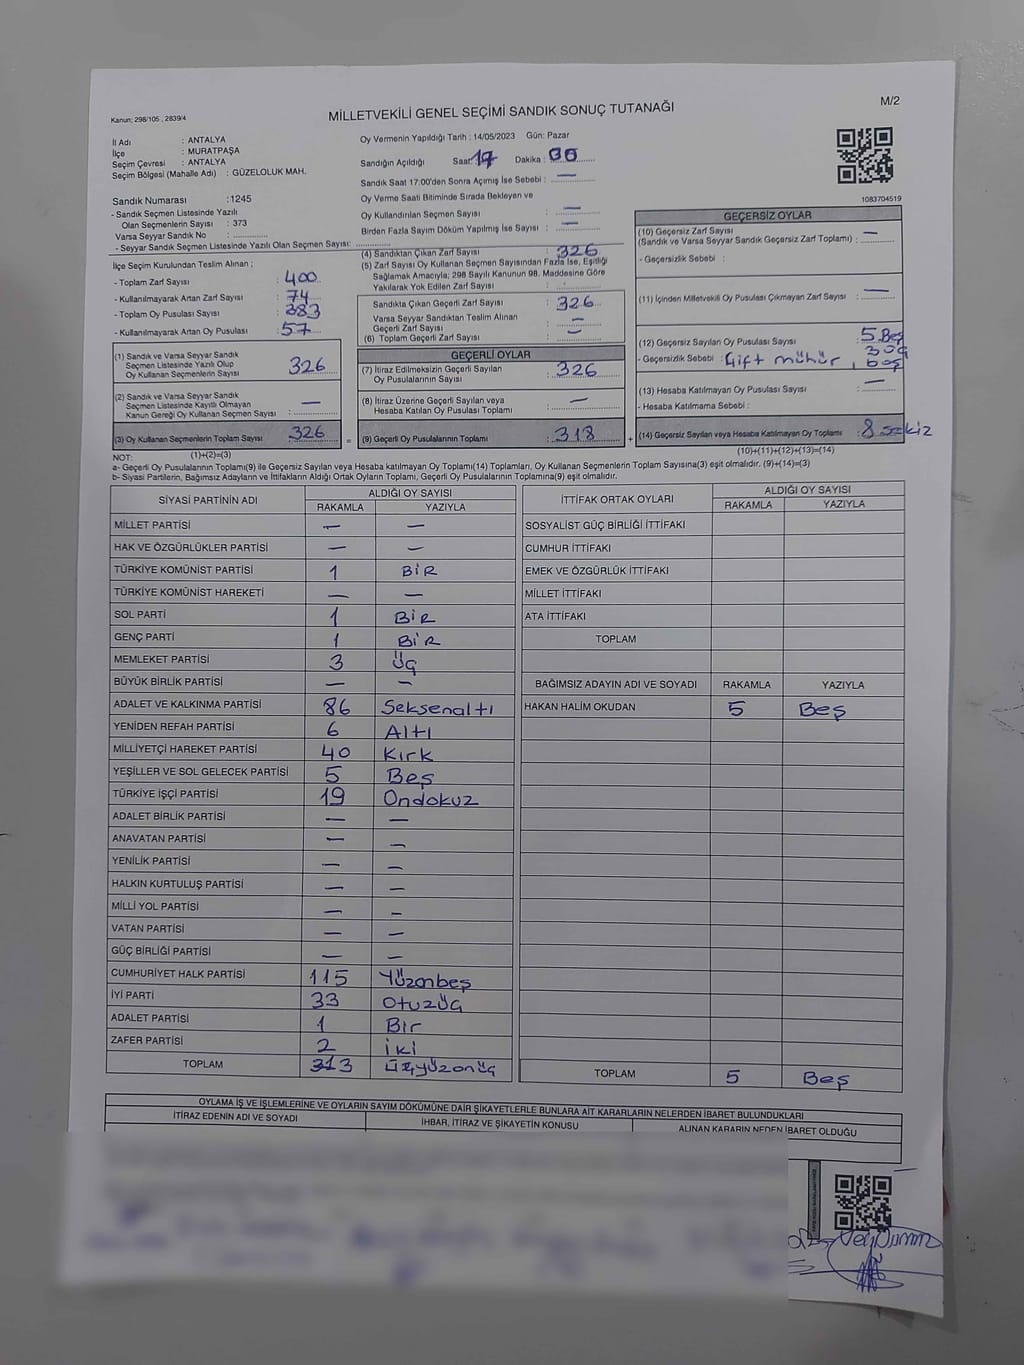 M/2
MİLLETVEKİLİ GENEL SEÇİMİ SANDIK SONUÇ TUTANAĞI
Kanun; 298/105 , 2839/4
İl Adı : ANTALYA
İlçe : MURATPAŞA
Seçim Çevresi : ANTALYA
Seçim Bölgesi (Mahalle Adı) : GÜZELOLUK MAH.
Oy Vermenin Yapıldığı Tarih : 14/05/2023 Gün: Pazar
Sandığın Açıldığı Saat: 17 Dakika :
Sandık Saat 17:00'den Sonra Açımış İse Sebebi : —
Oy Verme Saati Bitiminde Sırada Bekleyen ve
Oy Kullandırılan Seçmen Sayısı : —
Birden Fazla Sayım Döküm Yapılmış İse Sayısı : —
1083704519
Sandık Numarası :1245
- Sandık Seçmen Listesinde Yazılı
Olan Seçmenlerin Sayısı : 373
Varsa Seyyar Sandık No :
- Seyyar Sandık Seçmen Listesinde Yazılı Olan Seçmen Sayısı:
İlçe Seçim Kurulundan Teslim Alınan ;
- Toplam Zarf Sayısı : 400
- Kullanılmayarak Artan Zarf Sayısı : 74
- Toplam Oy Pusulası Sayısı : 383
- Kullanılmayarak Artan Oy Pusulası : 57
(1) Sandık ve Varsa Seyyar Sandık
Seçmen Listesinde Yazılı Olup
Oy Kullanan Seçmenlerin Sayısı : 326
(2) Sandık ve Varsa Seyyar Sandık
Seçmen Listesinde Kayıtlı Olmayan
Kanun Gereği Oy Kullanan Seçmen Sayısı : —
(3) Oy Kullanan Seçmenlerin Toplam Sayısı : 326
(1)+(2)=(3)
(4) Sandıktan Çıkan Zarf Sayısı : 326
(5) Zarf Sayısı Oy Kullanan Seçmen Sayısından Fazla İse, Eşitliği
Sağlamak Amacıyla; 298 Sayılı Kanunun 98. Maddesine Göre
Yakılarak Yok Edilen Zarf Sayısı :
Sandıkta Çıkan Geçerli Zarf Sayısı : 326
Varsa Seyyar Sandıktan Teslim Alınan
Geçerli Zarf Sayısı : —
(6) Toplam Geçerli Zarf Sayısı : —
GEÇERLİ OYLAR
(7) İtiraz Edilmeksizin Geçerli Sayılan
Oy Pusulalarının Sayısı : 326
(8) İtiraz Üzerine Geçerli Sayılan veya
Hesaba Katılan Oy Pusulası Toplamı : —
= (9) Geçerli Oy Pusulalarının Toplamı : 318
GEÇERSİZ OYLAR
(10) Geçersiz Zarf Sayısı
(Sandık ve Varsa Seyyar Sandık Geçersiz Zarf Toplamı) : —
- Geçersizlik Sebebi :
(11) İçinden Milletvekili Oy Pusulası Çıkmayan Zarf Sayısı : —
(12) Geçersiz Sayılan Oy Pusulası Sayısı : 5 Beş
3 üç
- Geçersizlik Sebebi : Çift mühür , boş
(13) Hesaba Katılmayan Oy Pusulası Sayısı : —
- Hesaba Katılmama Sebebi :
+ (14) Geçersiz Sayılan veya Hesaba Katılmayan Oy Toplamı : 8 sekiz
(10)+(11)+(12)+(13)=(14)
NOT:
a- Geçerli Oy Pusulalarının Toplamı(9) ile Geçersiz Sayılan veya Hesaba katılmayan Oy Toplamı(14) Toplamları, Oy Kullanan Seçmenlerin Toplam Sayısına(3) eşit olmalıdır. (9)+(14)=(3)
b- Siyasi Partilerin, Bağımsız Adayların ve İttifakların Aldığı Ortak Oyların Toplamı, Geçerli Oy Pusulalarının Toplamına(9) eşit olmalıdır.
SİYASİ PARTİNİN ADI ALDIĞI OY SAYISI
RAKAMLA YAZIYLA
MİLLET PARTİSİ — —
HAK VE ÖZGÜRLÜKLER PARTİSİ — —
TÜRKİYE KOMÜNİST PARTİSİ 1 BİR
TÜRKİYE KOMÜNİST HAREKETİ — —
SOL PARTİ 1 BİR
GENÇ PARTİ 1 BİR
MEMLEKET PARTİSİ 3 üç
BÜYÜK BİRLİK PARTİSİ — —
ADALET VE KALKINMA PARTİSİ 86 Seksenaltı
YENİDEN REFAH PARTİSİ 6 Altı
MİLLİYETÇİ HAREKET PARTİSİ 40 Kırk
YEŞİLLER VE SOL GELECEK PARTİSİ 5 Beş
TÜRKİYE İŞÇİ PARTİSİ 19 Ondokuz
ADALET BİRLİK PARTİSİ — —
ANAVATAN PARTİSİ — —
YENİLİK PARTİSİ — —
HALKIN KURTULUŞ PARTİSİ — —
MİLLİ YOL PARTİSİ — —
VATAN PARTİSİ — —
GÜÇ BİRLİĞİ PARTİSİ — —
CUMHURİYET HALK PARTİSİ 115 Yüzonbeş
İYİ PARTİ 33 Otuzüç
ADALET PARTİSİ 1 Bir
ZAFER PARTİSİ 2 iki
TOPLAM 313 üçyüzonüç
İTTİFAK ORTAK OYLARI ALDIĞI OY SAYISI
RAKAMLA YAZIYLA
SOSYALİST GÜÇ BİRLİĞİ İTTİFAKI
CUMHUR İTTİFAKI
EMEK VE ÖZGÜRLÜK İTTİFAKI
MİLLET İTTİFAKI
ATA İTTİFAKI
TOPLAM
BAĞIMSIZ ADAYIN ADI VE SOYADI RAKAMLA YAZIYLA
HAKAN HALİM OKUDAN 5 Beş
TOPLAM 5 Beş
OYLAMA İŞ VE İŞLEMLERİNE VE OYLARIN SAYIM DÖKÜMÜNE DAİR ŞİKAYETLERLE BUNLARA AİT KARARLARIN NELERDEN İBARET BULUNDUKLARI
İTİRAZ EDENİN ADI VE SOYADI İHBAR, İTİRAZ VE ŞİKAYETİN KONUSU ALINAN KARARIN NEDEN İBARET OLDUĞU